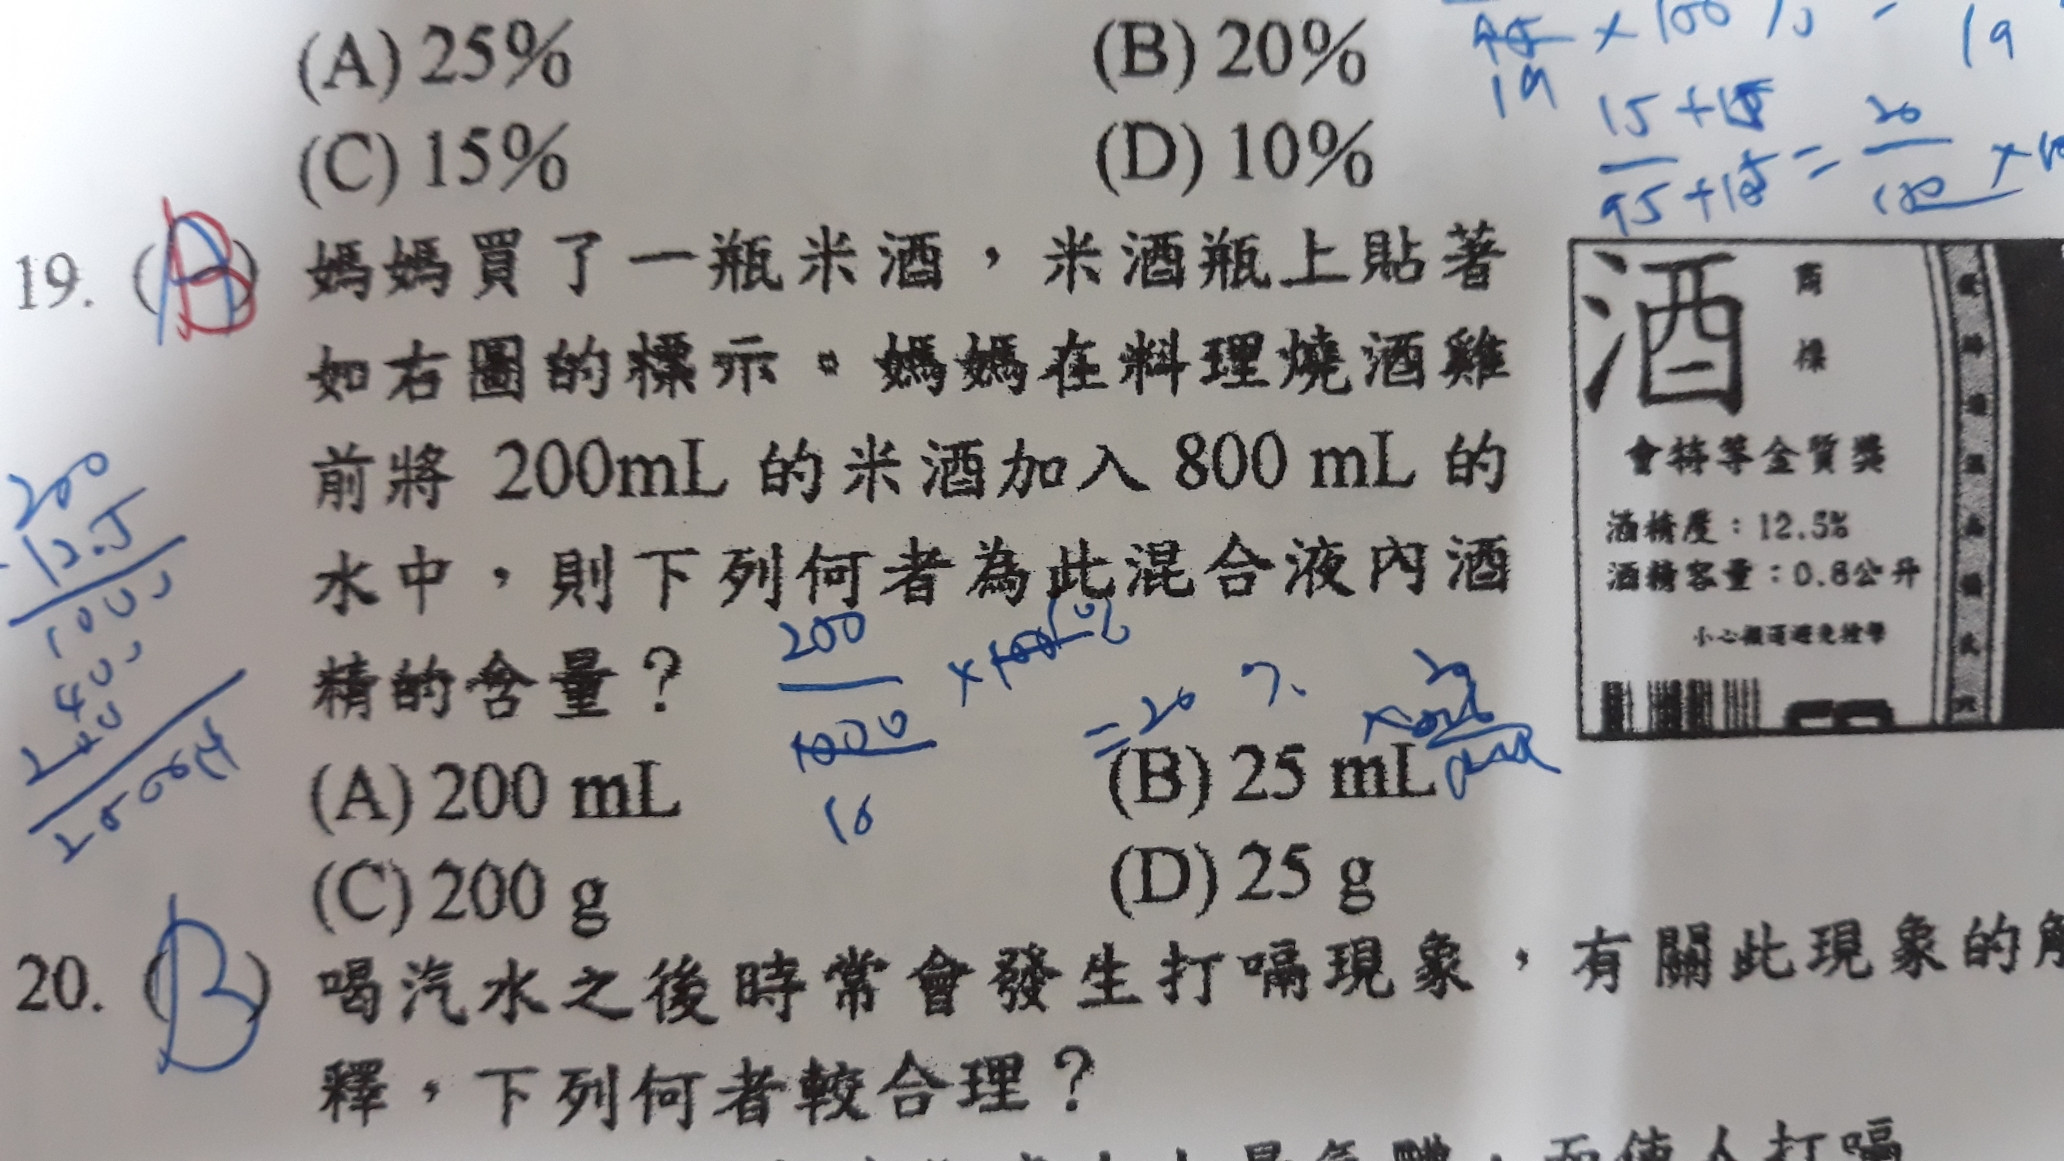 (A) 25% (B) 20%
(C) 15% (D) 10%
× 100 % = 19
19
15 + 15
95 + 15 = 20
100
19. (B) 媽媽買了一瓶米酒，米酒瓶上貼著
如右圖的標示。媽媽在料理燒酒雞
前將 200mL 的米酒加入 800 mL 的
水中，則下列何者為此混合液內酒
精的含量？
(A) 200 mL (B) 25 mL
(C) 200 g (D) 25 g
酒
商標
會特等金質獎
酒精度：12.5%
酒精容量：0.8公升
200
12.5
1000
400
200
200
1000
= 20 %
10
20. (B) 喝汽水之後時常會發生打嗝現象，有關此現象的解
釋，下列何者較合理？